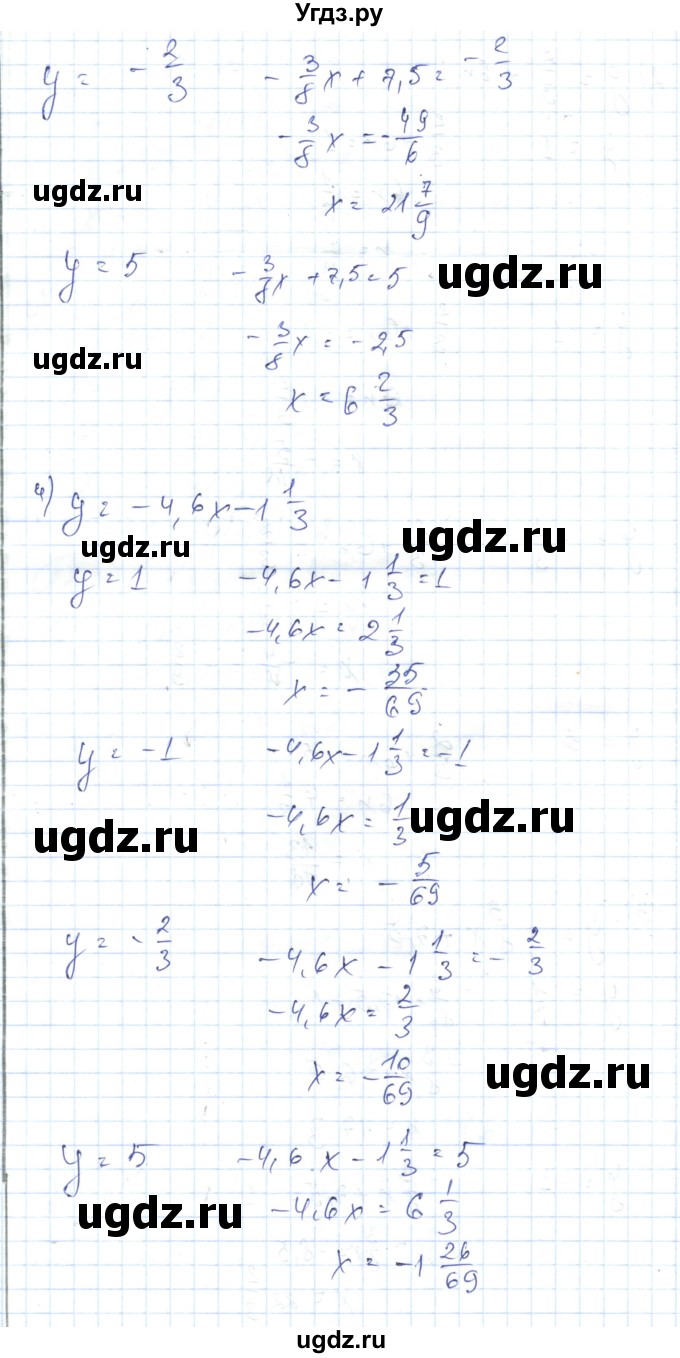 Угдз.ру
y = - 2/3    - 3/8 x + 7,5 = - 2/3
- 3/8 x = - 49/6
ugdz.ru
x = 21 7/9
y = 5    - 3/8 x + 7,5 = 5
ugdz.ru
- 3/8 x = - 2,5
ugdz.ru
x = 6 2/3
4) y = -4,6x - 1 1/3
ugdz.ru
ugdz.ru
y = 1    -4,6x - 1 1/3 = 1
-4,6x = 2 1/3
x = - 35/69
y = -1    -4,6x - 1 1/3 = -1
ugdz.ru
-4,6x = 1/3
ugdz.ru
x = - 5/69
y = - 2/3    -4,6x - 1 1/3 = - 2/3
-4,6x = 2/3
x = - 10/69
ugdz.ru
y = 5    -4,6.x - 1 1/3 = 5
ugdz.ru
-4,6x = 6 1/3
x = -1 26/69
ugdz.ru